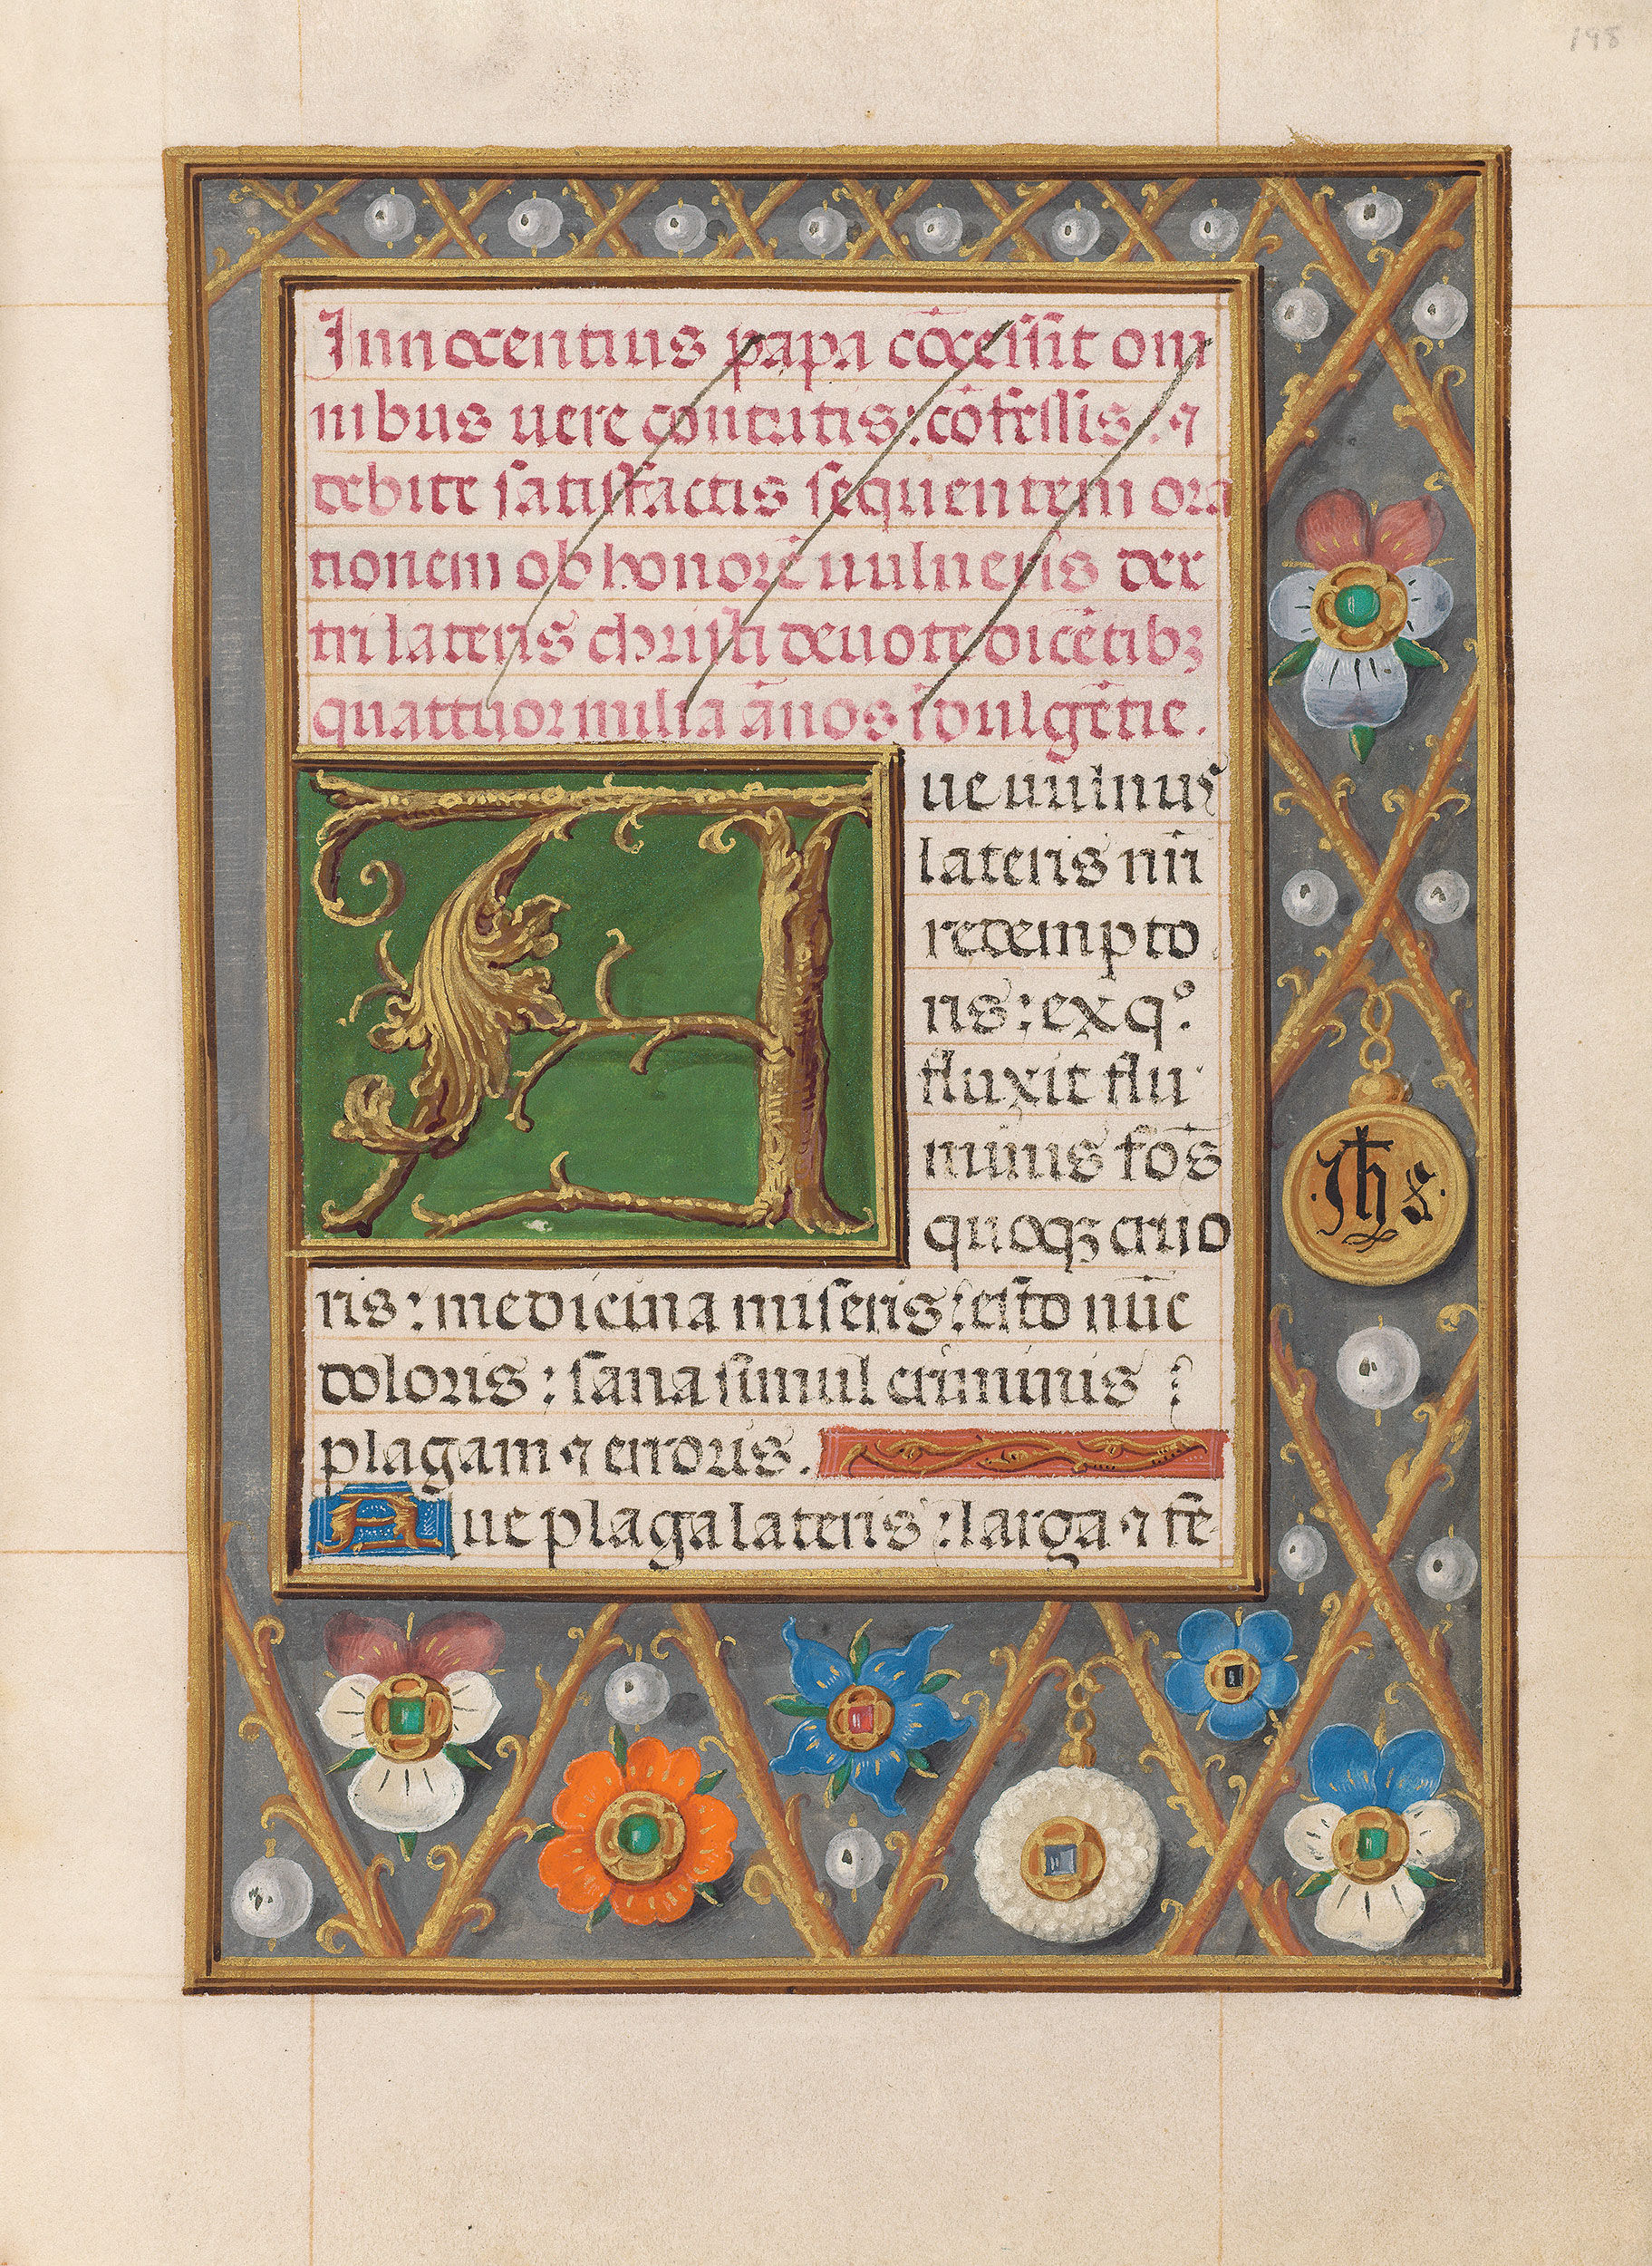 198
Innocentius papa cōcessit om
nibus vere contritis: cōfessis: ⁊
debite satisfactis sequentem ora
tionem ob honorē uulneris dex
tri lateris christi deuote dicētibꝫ
quattuor milia ānos īdulgētie.
Aue uulnus
lateris nr̄i
redempto
ris: ex qͦ.
fluxit flu
minis fōs
quoqꝫ cruo
ris: medicina miseris: esto nūc
doloris: sana simul criminis :
plagam ⁊ erroris.
Aue plaga lateris: larga ⁊ fe
Ihs